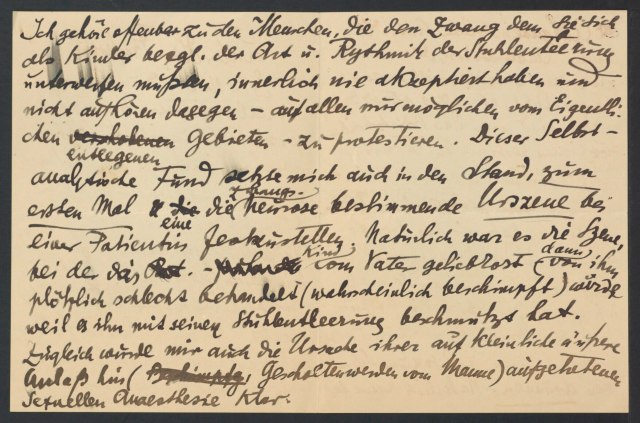 Ich gehöre offenbar zu den Menschen, die den Zwang dem sie sich
als Kinder bezgl. der Art u. Rythmik der Stuhlentleerung
unterwerfen mußten, innerlich nie akzeptiert haben und
nicht aufhören dagegen – auf allen nur möglichen vom Eigentli-
chen verschobenen Gebieten – zu protestieren. Dieser Selbst-
entlegenen
analytische Fund setzte mich auch in den Stand, zum
Zwangs-
ersten Mal die die Neurose bestimmende Urszene bei
eine
einer Patientin festzustellen. Natürlich war es die Szene,
Kind dann
bei der das Pat. – vom Vater geliebkost (von ihm
plötzlich schlecht behandelt (wahrscheinlich beschimpft) wurde
weil es ihn mit seinen Stuhlentleerung beschmutzt hat.
Zugleich wurde mir auch die Ursache ihrer auf kleinliche äußere
Anlaß hin (Beschimpfg, Gescholtenwerden vom Manne) aufgetretenen
sexuellen Anaesthesie klar.